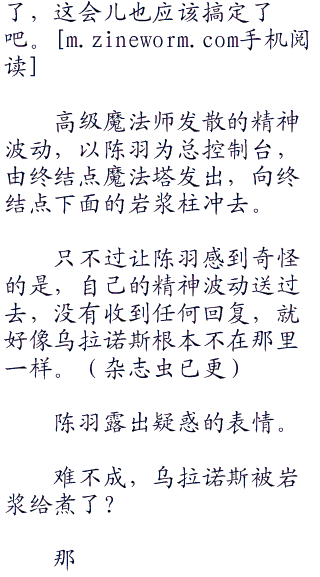 了，这会儿也应该搞定了
吧。[m.zineworm.com手机阅
读]
高级魔法师发散的精神
波动，以陈羽为总控制台，
由终结点魔法塔发出，向终
结点下面的岩浆柱冲去。
只不过让陈羽感到奇怪
的是，自己的精神波动送过
去，没有收到任何回复，就
好像乌拉诺斯根本不在那里
一样。（杂志虫已更）
陈羽露出疑惑的表情。
难不成，乌拉诺斯被岩
浆给煮了？
那